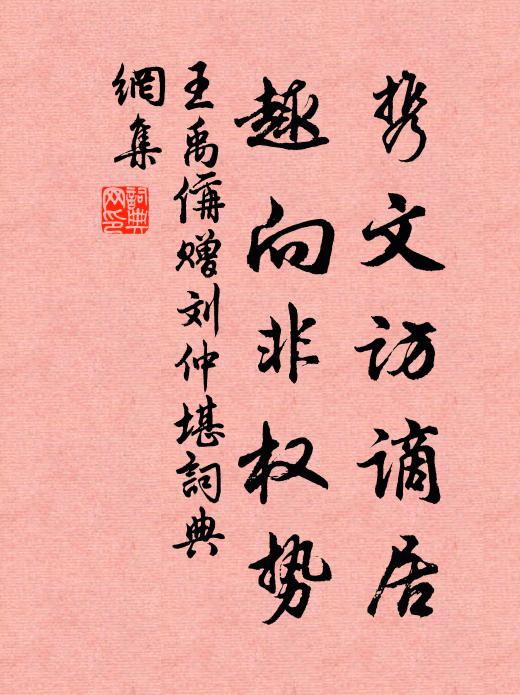 携文访谪居
趣向非权势
王禹偁赠刘仲堪詞典
網集
詞典
网印